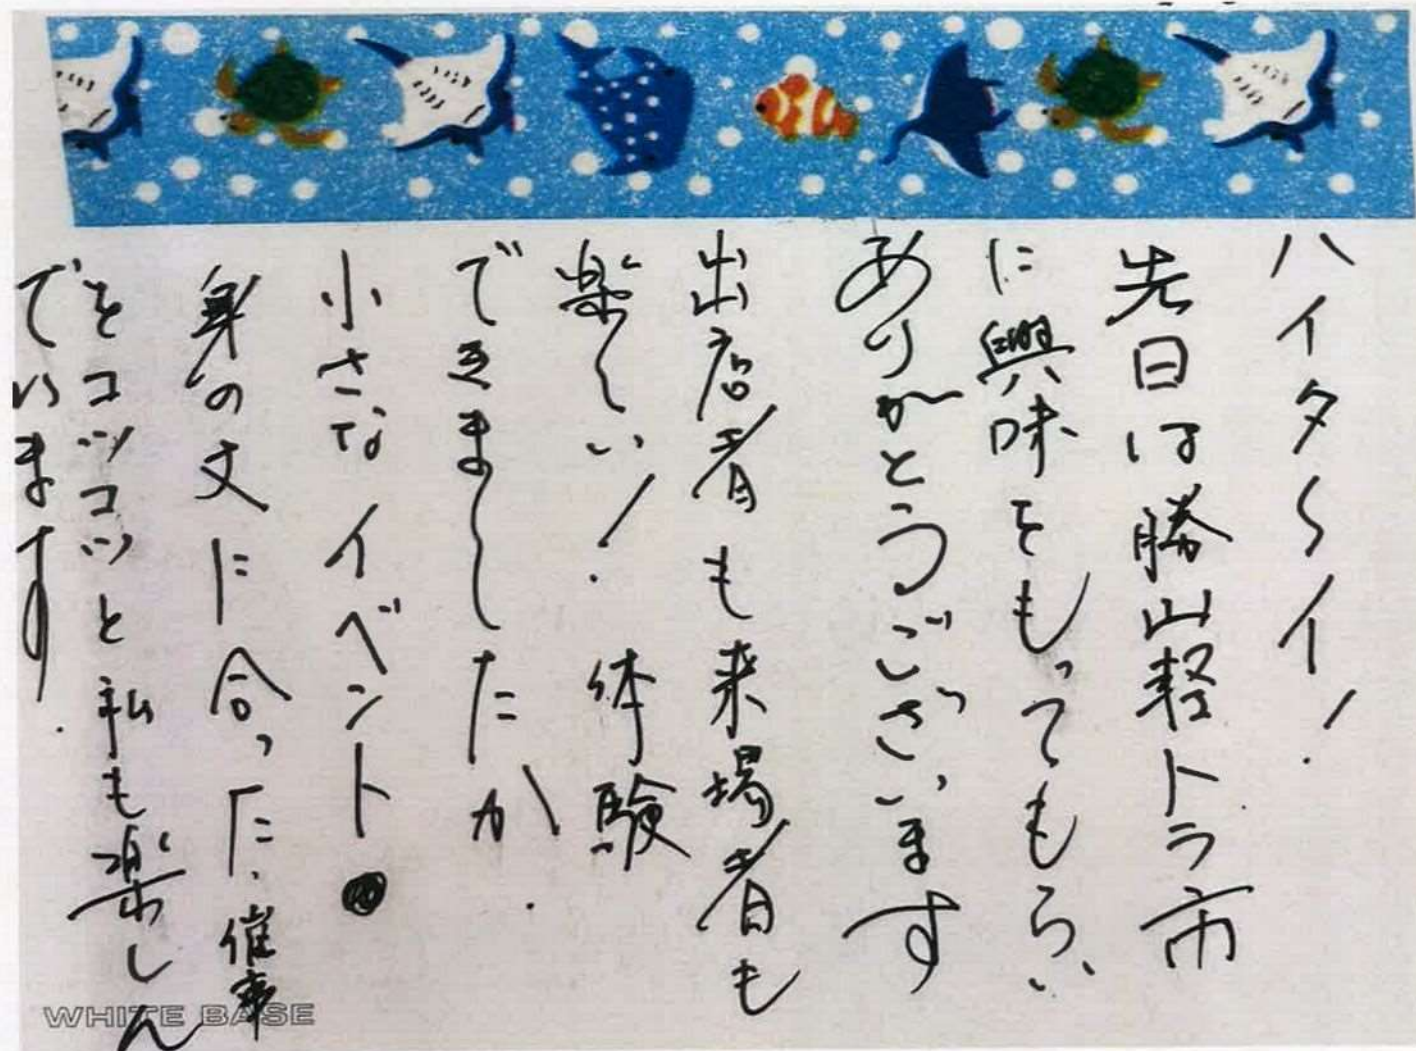 ハイタ〜イ!
先日は勝山軽トラ市
に興味をもってもらい
ありがとうございます
出店者も来場者も
楽しい!体験
できましたか.
小さなイベント
身の丈に合った、催事
をコツコツと私も楽しん
でいます.
WHITE BASE